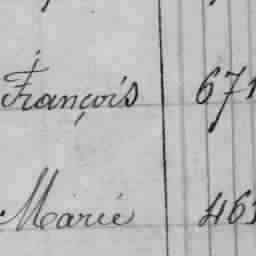 François 671
Marie 463